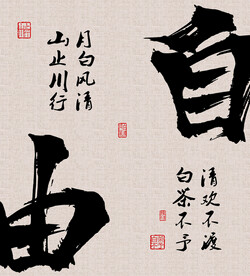 自
由
月白风清
山止川行
清欢不渡
白茶不予